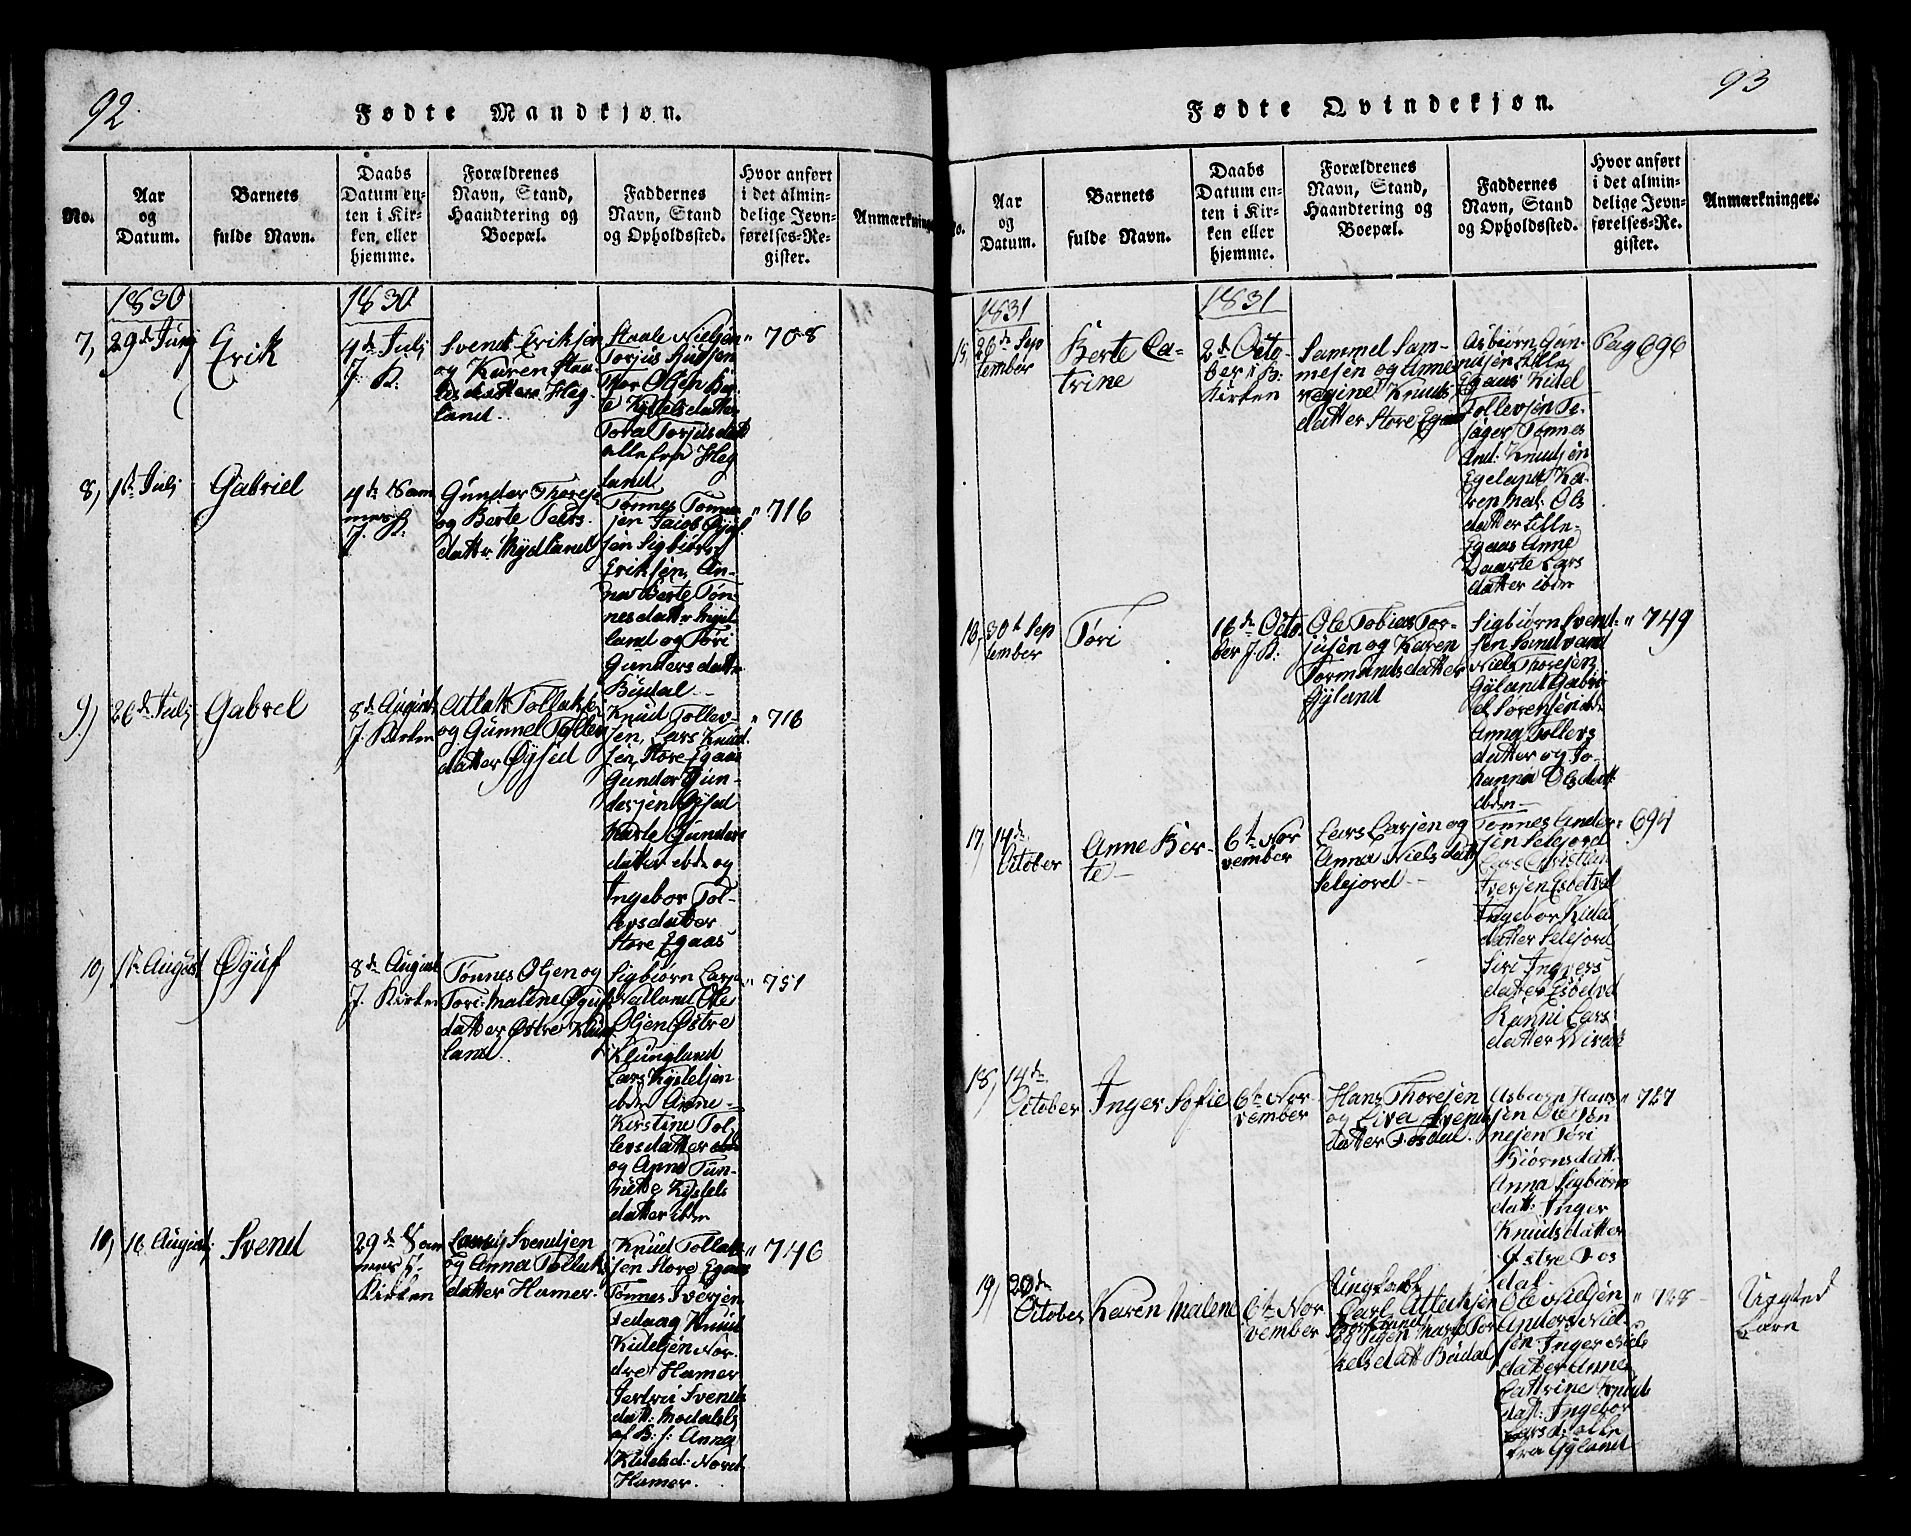 92.
Fødte Mandkjøn.
No.
Aar
og
Datum.
Barnets
fulde Navn.
Daabs
Datum en-
ten i Kir-
ken, eller
hjemme.
Forældrenes
Navn, Stand,
Haandtering og
Boepæl.
Faddernes
Navn, Stand
og Opholdssted.
Hvor anført
i det almin-
delige Jevn-
førelses-Re-
gister.
Anmærkninger
1830
1830
7,
29de Junj
Erik
4de Julj
J. K:
Svend Eriksen
og Karen Staa-
lesdatter Heg-
land.
Staale Nielsen
Torjus
Thor Olsen Ber-
te Kjstelsdatter
Tora Torjusdatt
alle fra Heg
land
" 708
8,
1ste Julj
Gabriel
4de
J. K:
Gunder Thorsen
og Berte Teis-
datter Mydland
Tønnes Tønne
sen Jacob
sen Sigbiørn
Eriksen, An-
na Berte Tøn-
nesdatter Myd
land og Tøri
Gundersdatter
Budal
" 716
9,)
26de Julj
Gabrel
8de August
J. Kirken
Atlak Tollaks
og Gunnel Tollev
datter Øysed
Knud Tollev-
sen, Lars Knud
sen, Store Egaas
Gunder Gun-
dersen Øysed
Karle Gunders
datter ebdn og
Ingebor Tol-
levsdatter
Store Egaas
" 716
10,
1ste August
Øyuf
8de August
J. Kirken
Tønnes Olsen og
Tori Malene Øyufs
datter Østre Klung
land.
Sigbiørn Larsen
Nalland Ole
Olsen Østre
Klungland
Lars Kystelsen
ebdn Anne
Kirstine Tol-
levsdatter ebdn
og Anne Gun-
nilde Kjstels
datter ibdn
" 751
10,
16 August
Svend
29de
Kirken
Svendsen
og Anna Tollaks
datter Hamer.
Knud Tollak
sen Store Egaas
Tønnes Iversen
Fedaag Knud
Kidelsen Nor-
dre Hamer
Jertru Svends
datt: Modalsli
af B: s: Anna
Kideld: Nord
Hamer.
" 746
93
Fødte Qvindekjøn.
No.
Aar
og
Datum.
Barnets
fulde Navn.
Daabs
Datum en-
ten i Kir-
ken eller
hjemme.
Forældrenes
Navn, Stand,
Haandtering og
Boepæl.
Faddernes
Navn, Stand
og Opholdssted.
Hvor anført
i det almin-
delige Jevn-
førelses-Re-
gister.
Anmærkninger.
1831
1831
15,
26de Sep
tember
Berte Ca-
trine
2de Octo-
ber i B:
Kirken
Sammel Sam-
melsen og Anne
regine Knuds
datter Store Egaas
Asbiørn Gun-
nusen Lille
Egaas Kidel
Tollevsen Te-
sager Tønnes
And: Knudsen
Egelapst Ka-
ren Mal: Ols
datter Lille
Egaas Anne
Daarte Lars
datter ibdn
Pag 696
16,
30te Sep
tember
Tøri
16de Octo
ber J. K:
Ole Tobias Tor-
jusen og Karen
Tormunds datter
Gyland
Sigbiørn Svend-
sen Sandvand
Niels Thoresen
Gyland Gabri
el Sørensen ibdn
Anna Tollevs
datter og Jo-
hanna Olsdatt
ibdn
" 749
17,
14de
October
Anne Ber-
te
6te Nor
vember
Lars Larsen og
Anna Nielsdatt
Selejord
Tønnes Ander-
sen Selejord
Lars Cristian
Iversen Esbetvet
Ingebor Kidel
datter Selejord
Siri Ingvers
datter Esbetvet
Lars
datter
" 694
18,
14de
October
Inger Sofie
6te Nor-
vember
Hans Thoresen
og Eiva Svends
datter Fosdal
Asbiørn Hans
sen Ole Tøn
nesen Tøri
Biørnsdatt
Anna Sigbiørns
datt: Inger
Knudsdatter
Østre Fos
dal
" 727
19,
20de
October
Karen Malene
6te Nor
vember
Ungkarl
Carl Attlaksen
og Pigen Maria Tor
kelsdatt Budal
Ole Nielsen
Anders Niel-
sen Inger Niels
datter Anne
Cattrine Knuds
datt: Ingebor
Larsd: alle
fra Gyland
" 728
Uægted
Barn